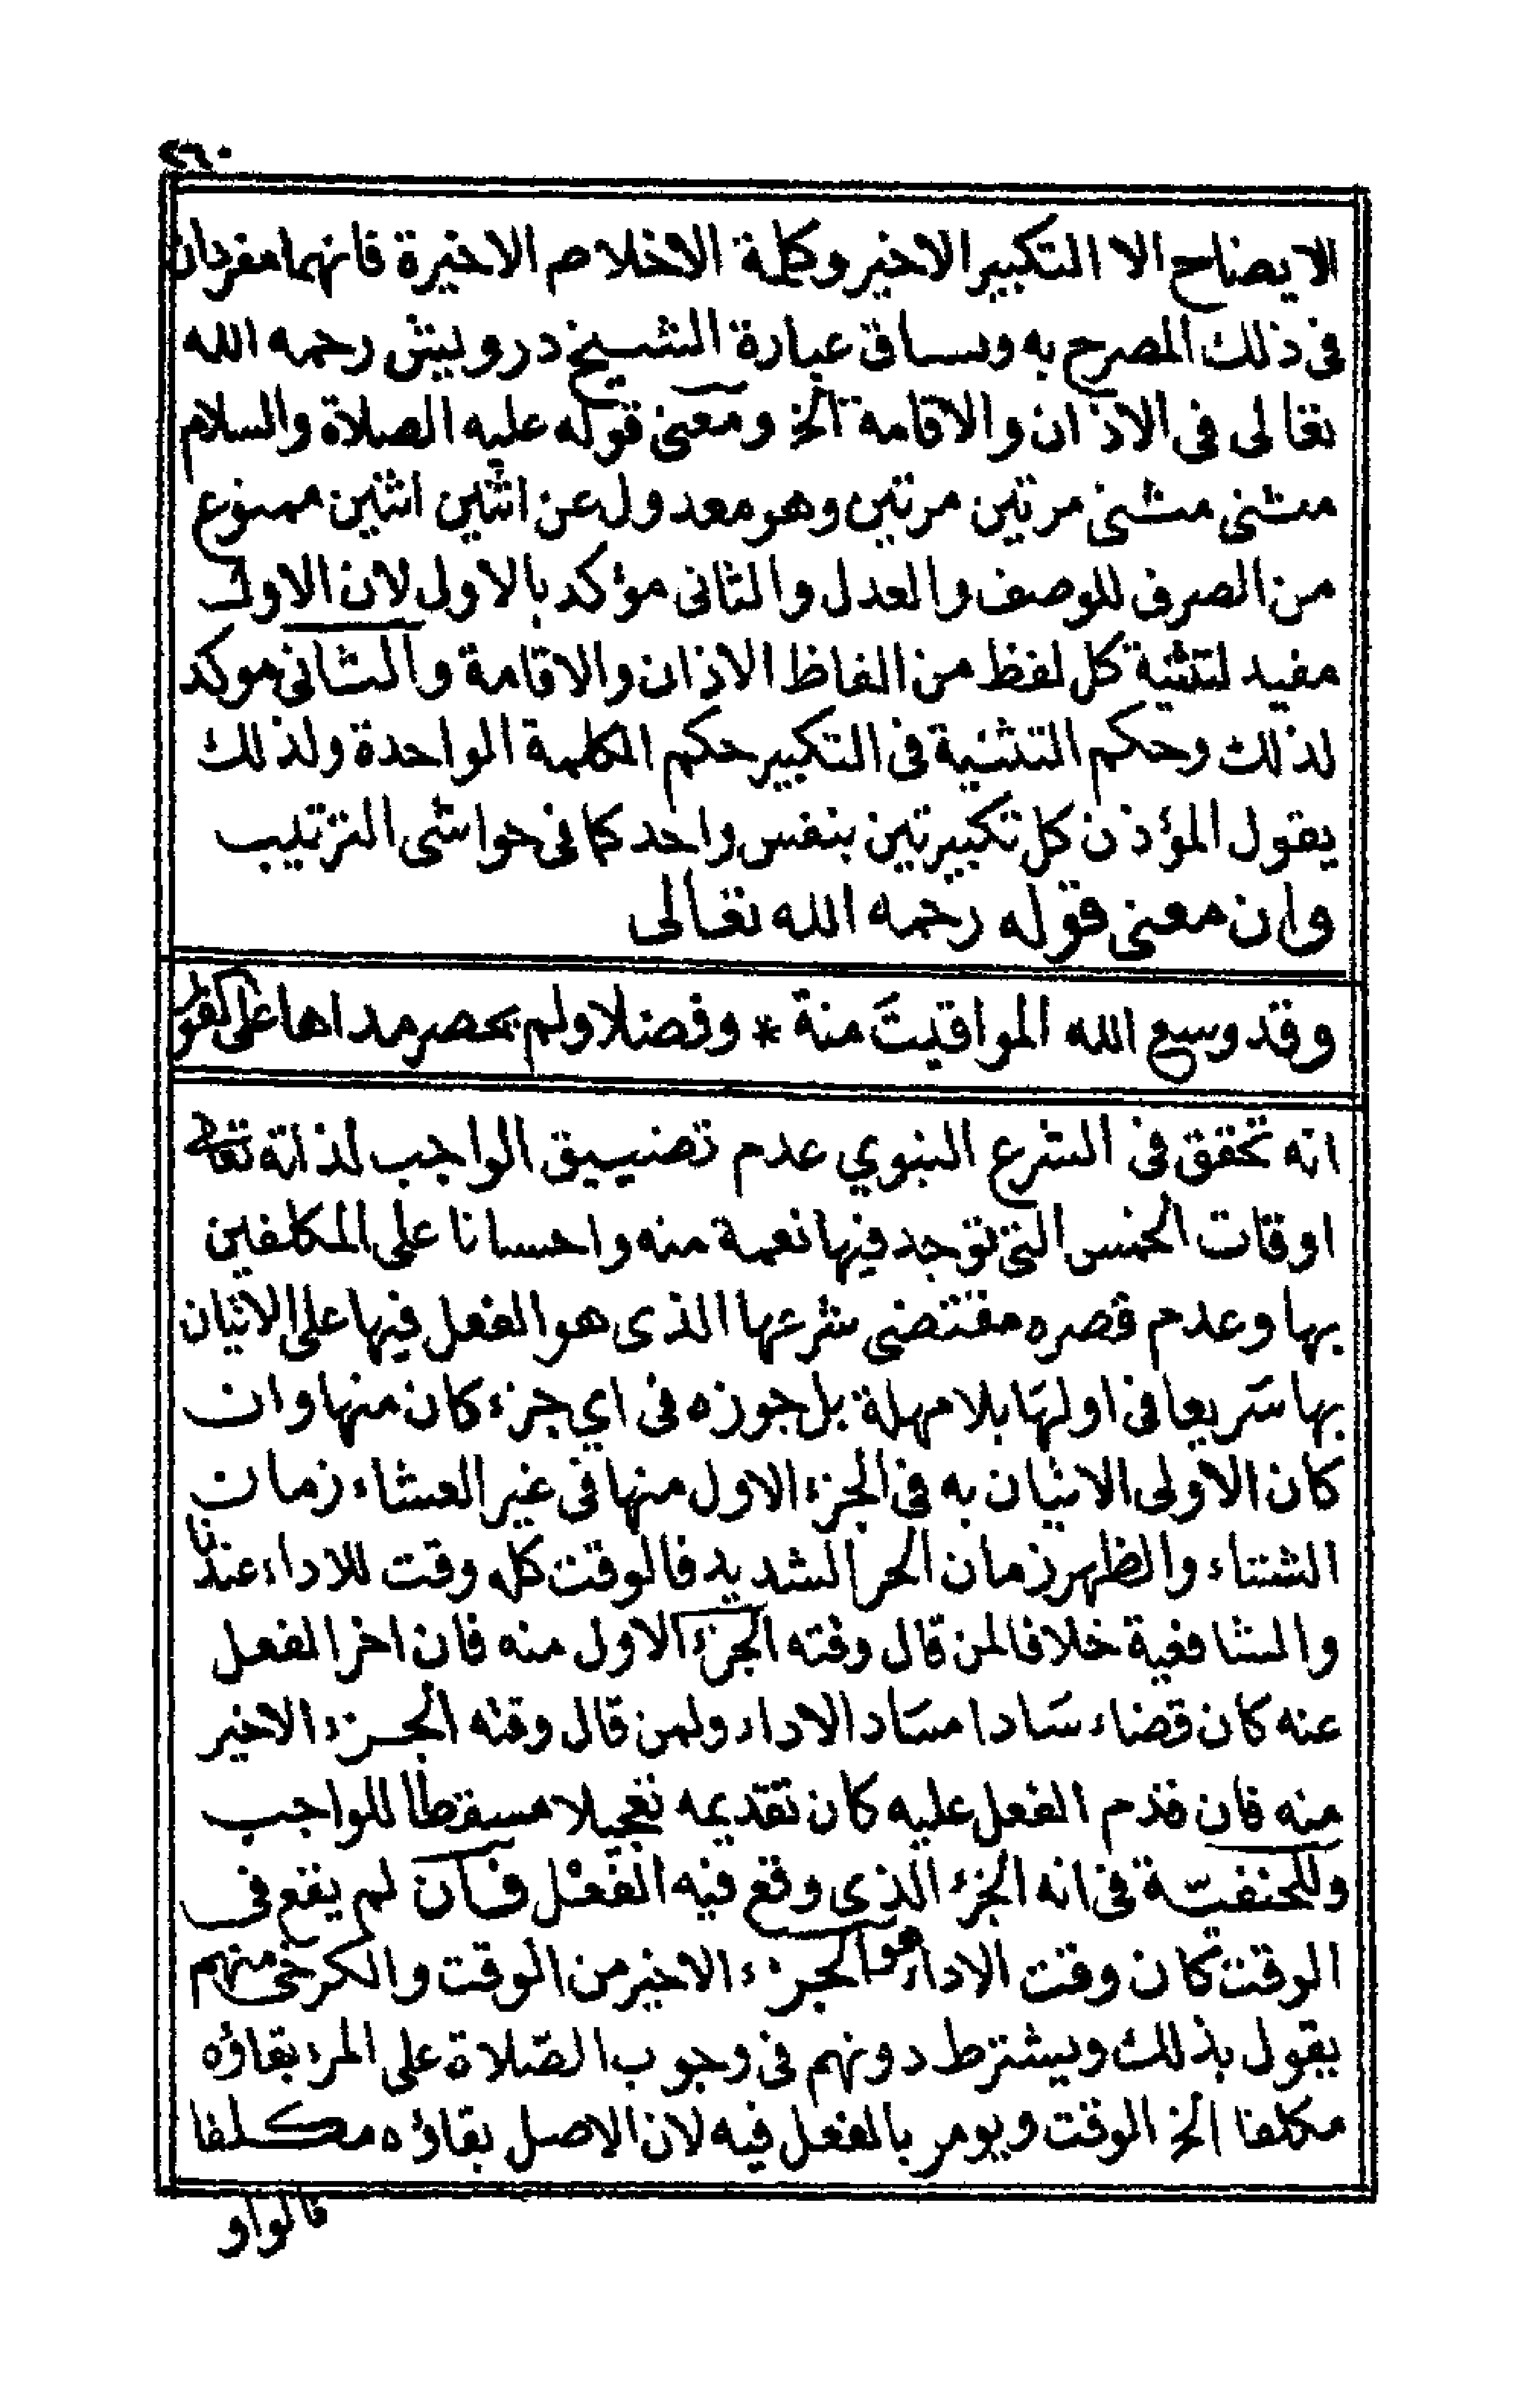 ٤٦٠
الايضاح الا التكبير الاخير وكلمة الاخلاص الاخيرة فانهما مفردان
فى ذلك المصرح به وساق عبارة الشيخ درويش رحمه الله
تعالى فى الاذان والاقامة الخ ومعنى قوله عليه الصلاة والسلام
مثنى مثنى مرتين مرتين وهو معدول عن اثنين اثنين ممنوع
من الصرف للوصف والعدل والثانى مؤكد بالاول لان الاول
مفيد لتثنية كل لفظ من الفاظ الاذان والاقامة والثانى موكد
لذلك وحكم التثنية فى التكبير حكم الكلمة الواحدة ولذلك
يقول المؤذن كل تكبيرتين بنفس واحد كما فى حواشى الترتيب
وان معنى قوله رحمه الله تعالى
وقد وسع الله المواقيتَ منة * وفضلا ولم يحصر مداها على الفور
انه تحقق فى الشرع النبوي عدم تضييق الواجب لذاته تعالى
اوقات الخمس التى توجد فيها نعمة منه واحسانا على المكلفين
بها وعدم قصره مقتضى شرعها الذى هو الفعل فيها على الاتيان
بها سَريعا فى اولهَا بلا مهلة بل جوزه فى اي جزء كان منها وان
كان الاولى الاتيان به فى الجزء الاول منها فى غير العشاء زمان
الشتاء والظهر زمان الحر الشديد فالوقت كله وقت للاداء عندنا
والشافعية خلافا لمن قال وقته الجزء الاول منه فان اخر الفعل
عنه كان قضاء سَادا مسَاد الاداء ولمن قال وقته الجزء الاخير
منه فان قدم الفعل عليه كان تقديمه تعجيلا مسقطا للواجب
وللحنفيّة فى انه الجزء الذى وقع فيه الفعْل فان لم يقع فى
الوقت كان وقت الاداء هو الجزء الاخير من الوقت والكرخى منهم
يقول بذلك ويشترط دونهم فى وجوب الصّلاة على المرء بقاؤه
مكلفا الخ الوقت ويومر بالفعل فيه لان الاصل بقاؤه مكلفا
قالوا و